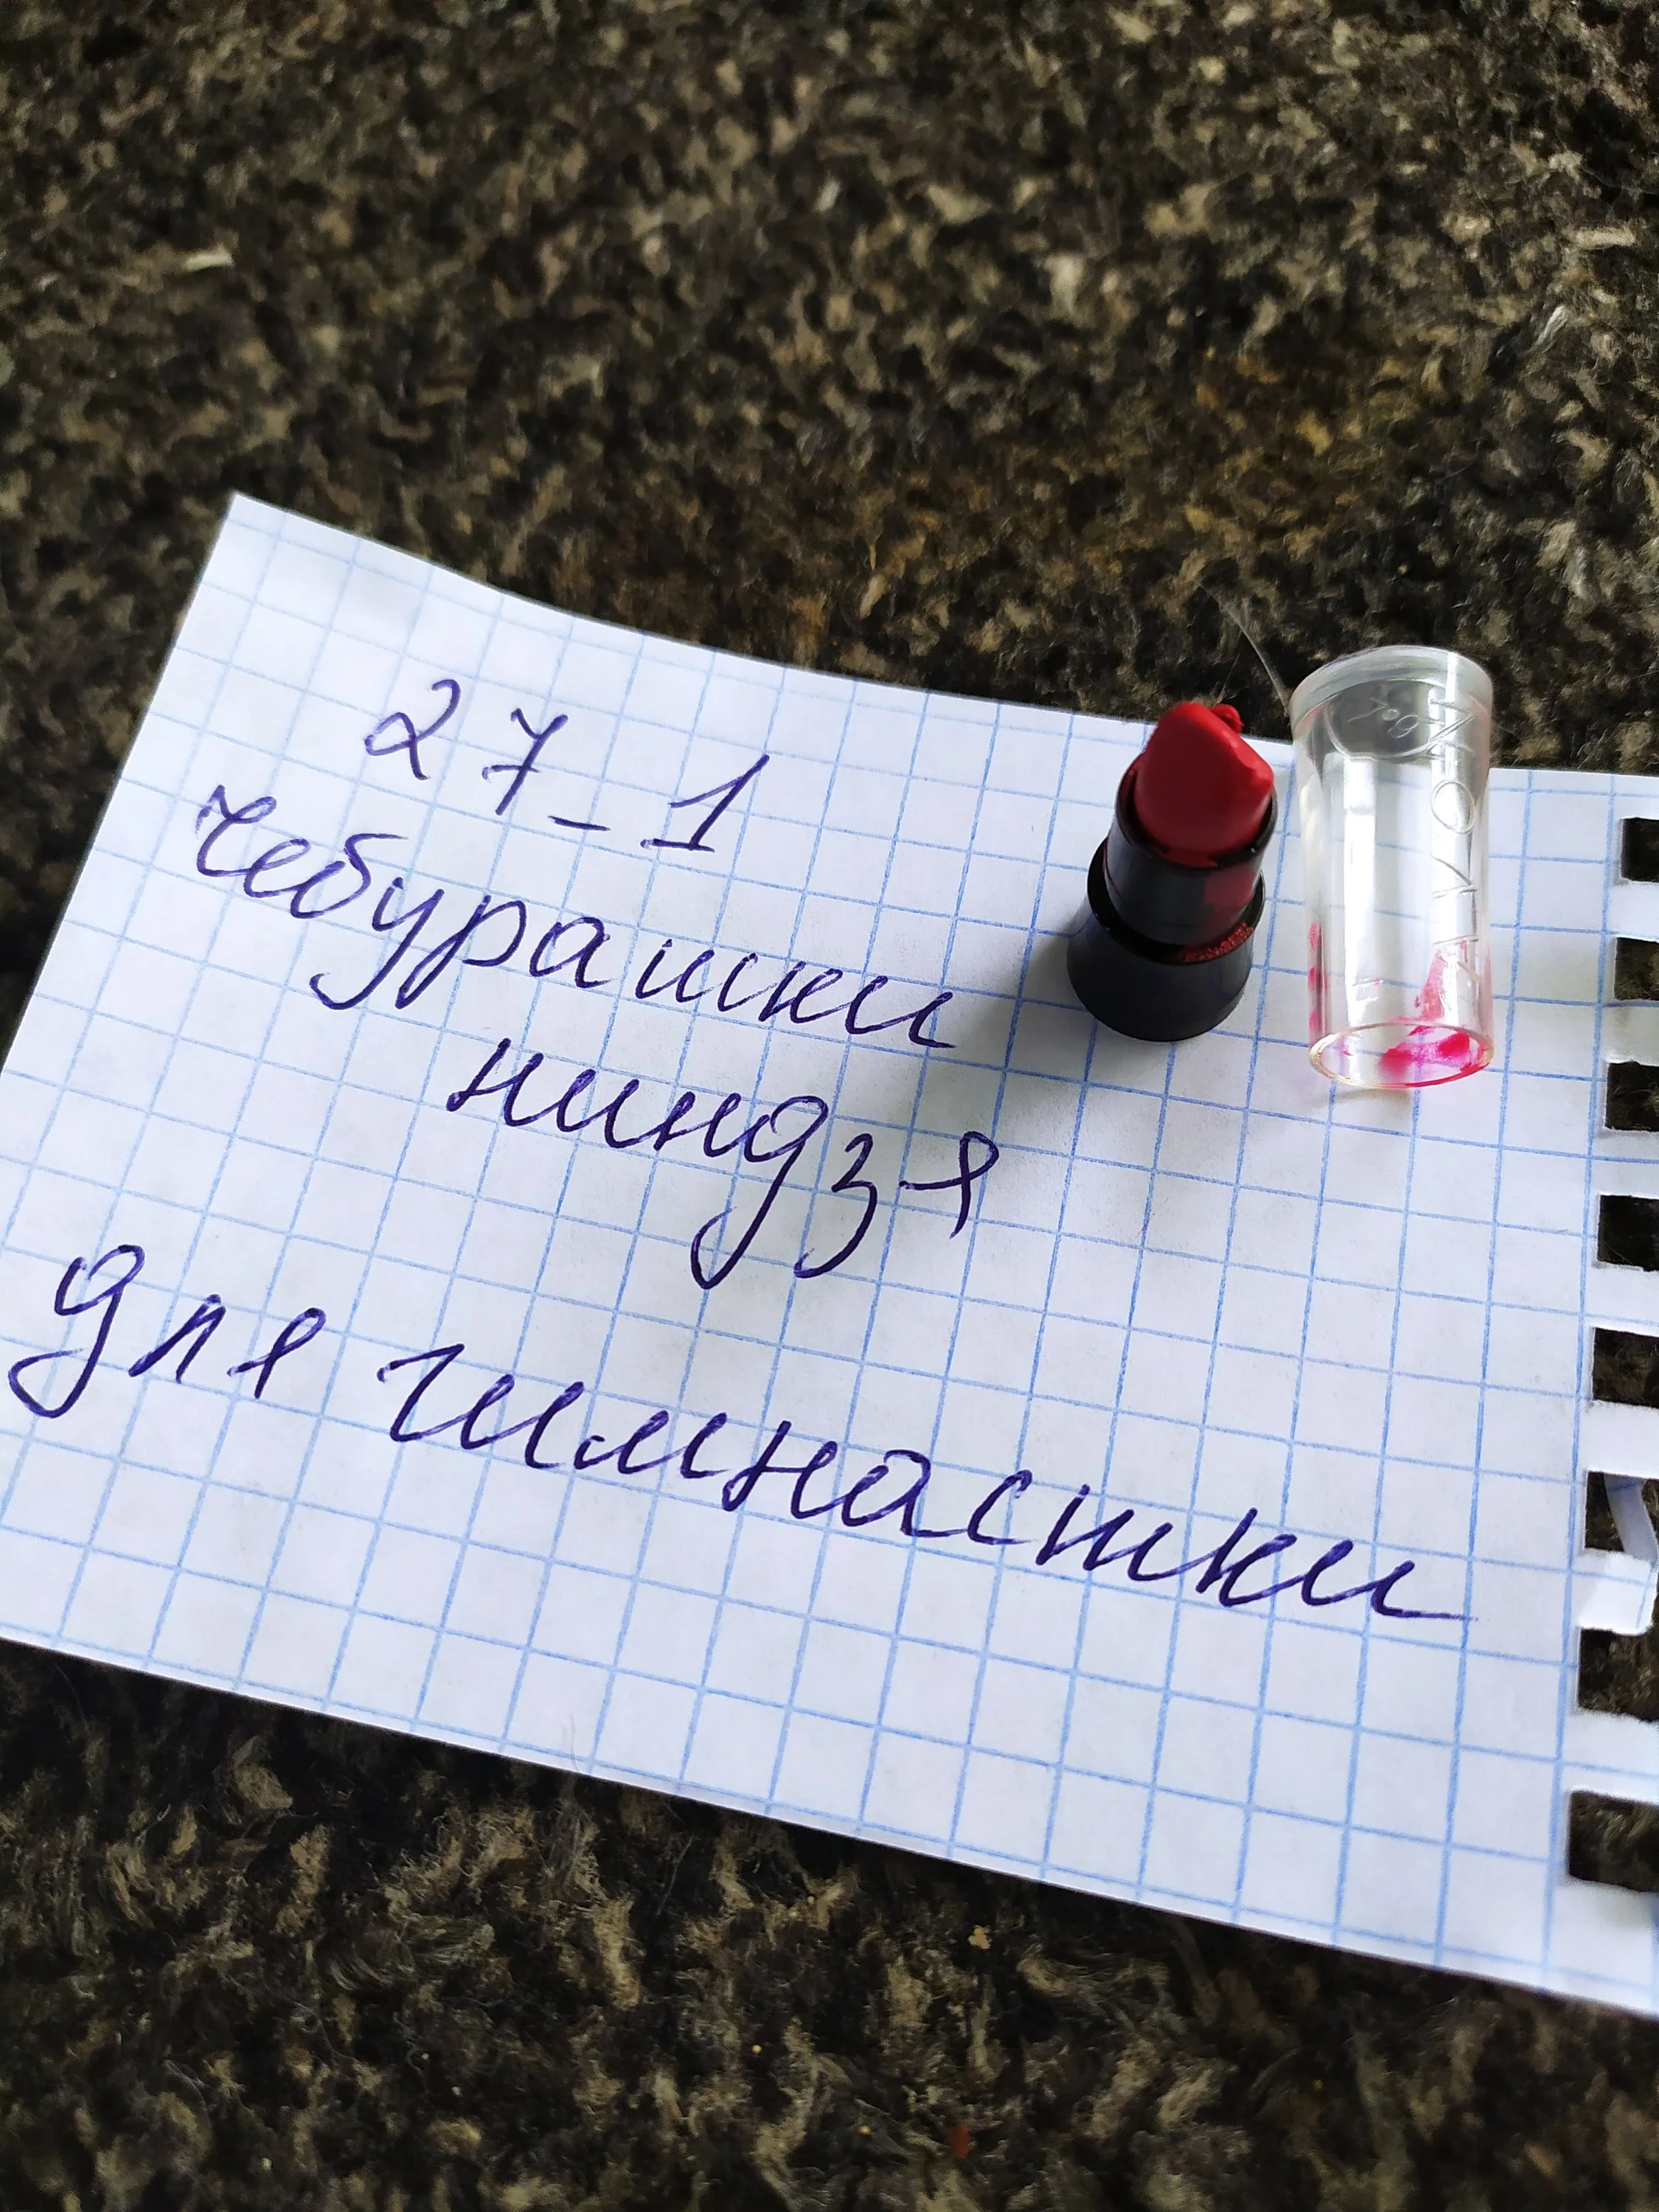 27_1
чебурашки
ниндзя
для гимнастки
AVON